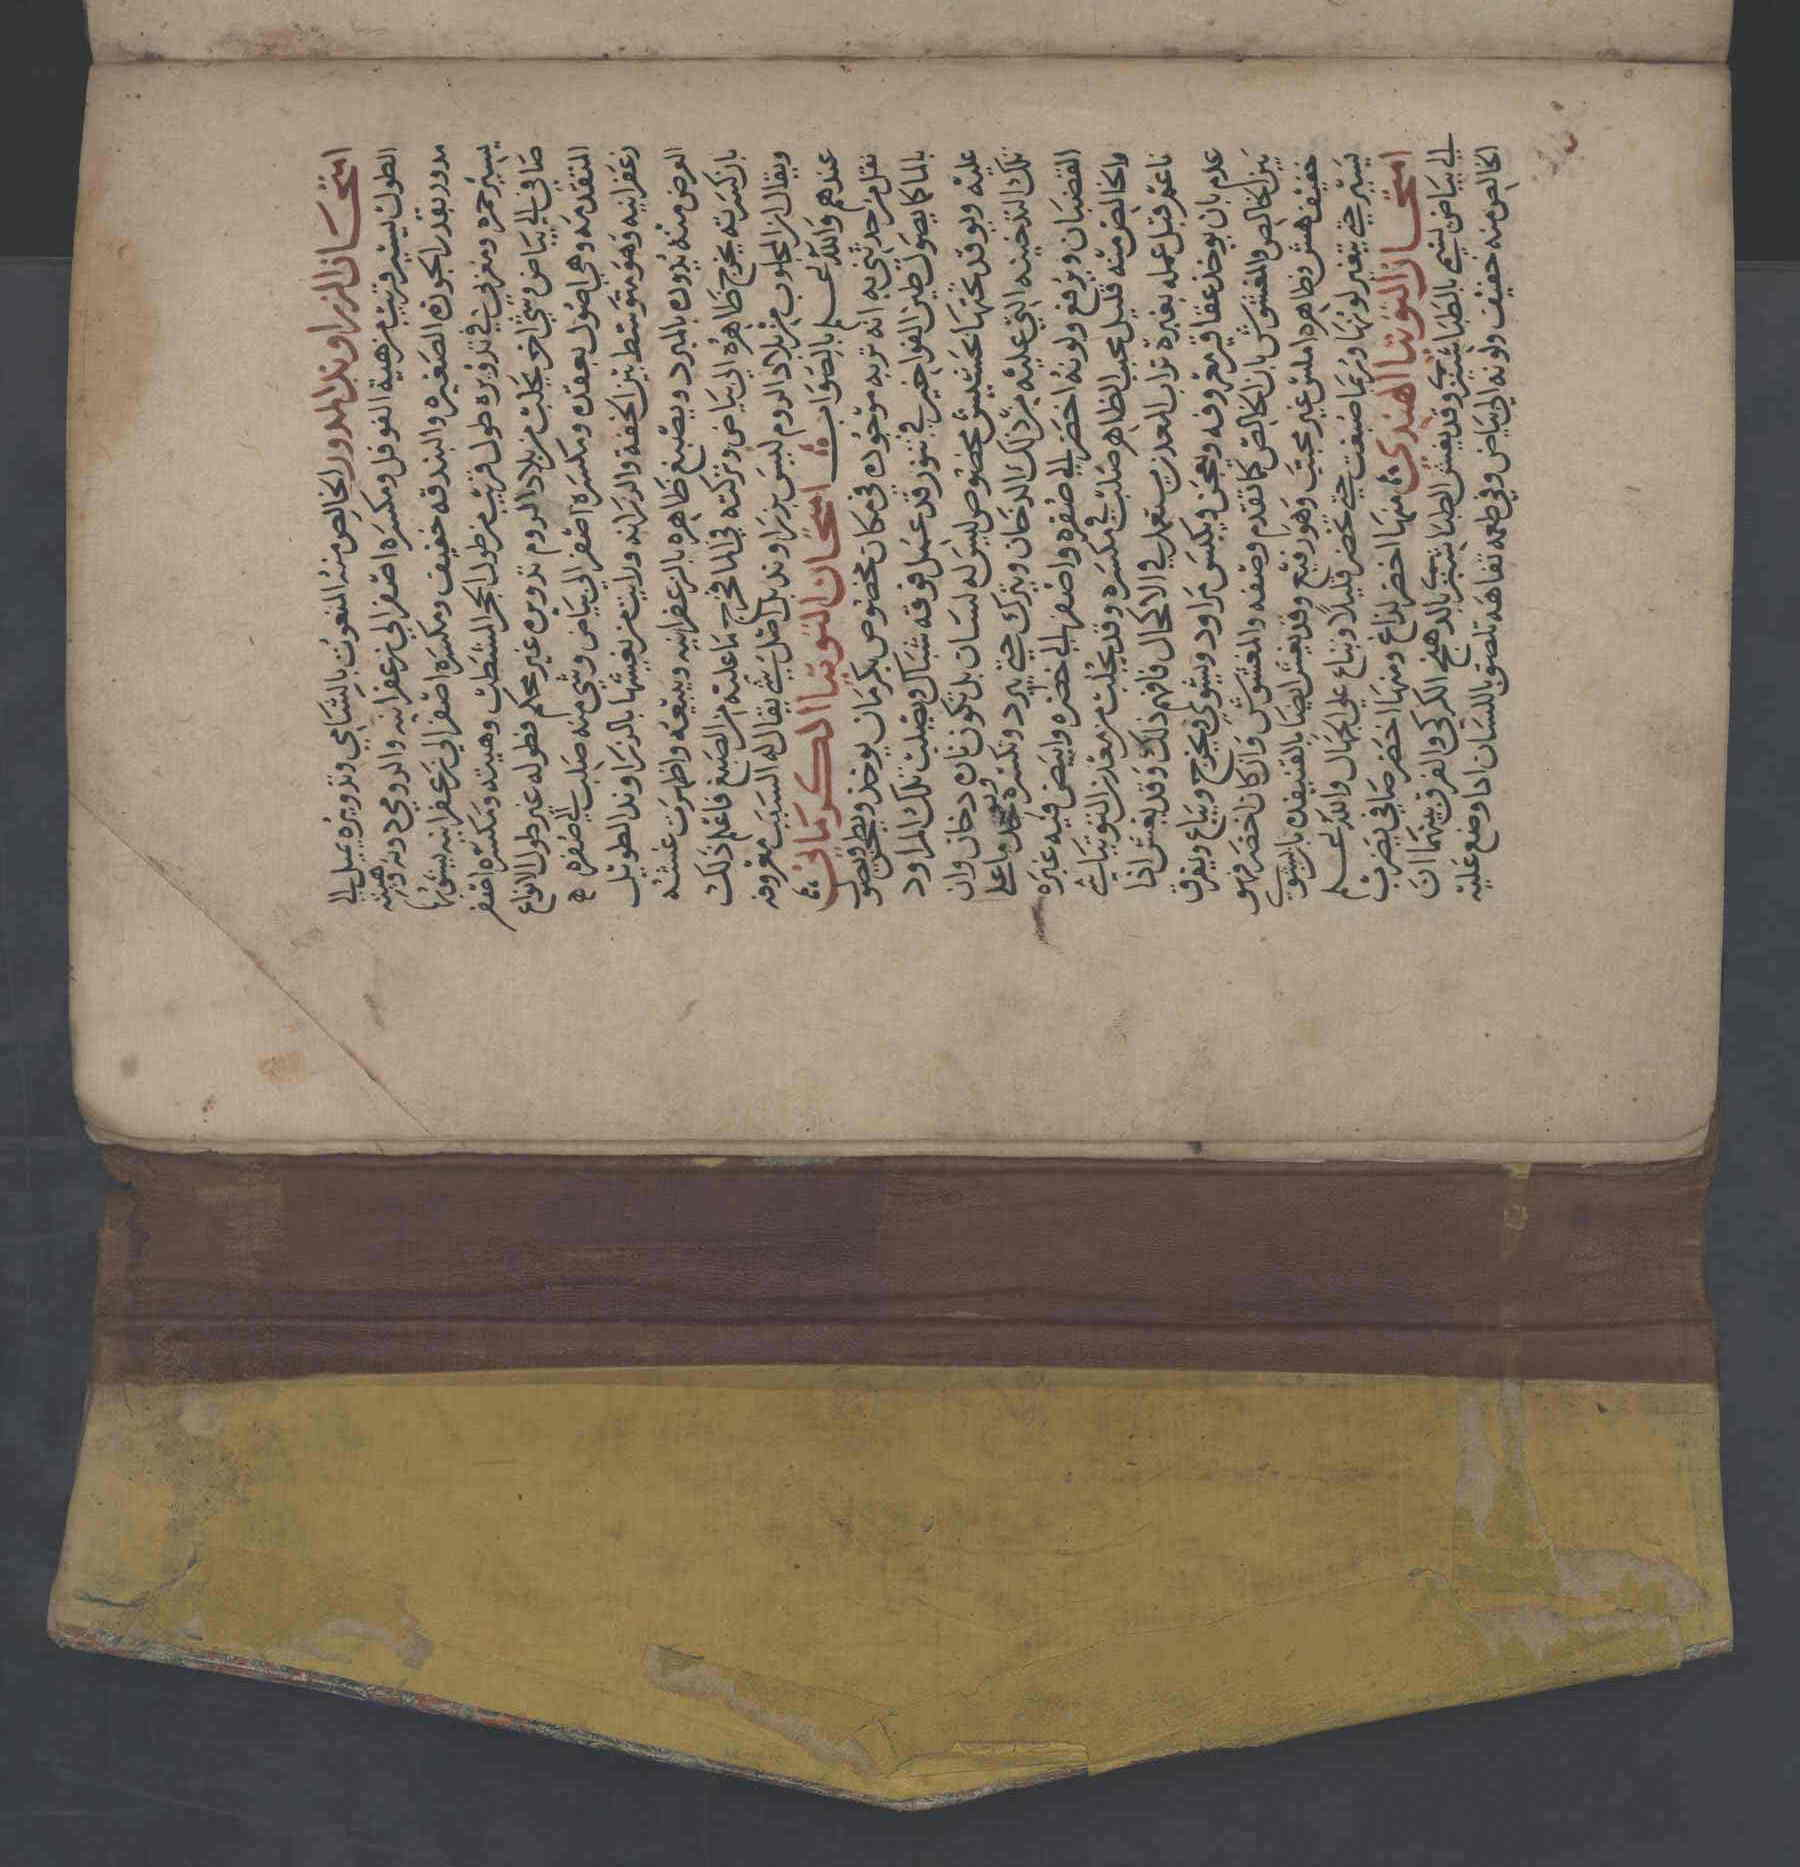 امتحان الزراوند المدور الخالص منه المنعوت بالشامي وتدويره يميل الى
الطول يسير قريب من هية الفوفل ومكسره اصفر الى زعفرانيه والرومي دونه وهيته
مدور بقدر الجوزه الصغيره والبندقه خفيف ومكسره اصفر الى زعفرانيه يشوبها
يسير حمره ومغربي في تدويره طول قريب من طول البحر المشطب وهيته ومكسره اصفر
صافي الى البياض وشي اخر يجلب من بلاد الروم تدويره غير محكم وطوله غير طول الانواع
المتقدمه وهي اصول بعقده ومكسره اصفر الى بياض وشي منه صلب الى صفره
زعفرانيه وهو متوسط بين الخفه والرزانه ورايت من يغشها بالزراوند الطويل
العرض منه يدوره بالمبرد ويصبغ ظاهره بالزعفرانيه ويبيعه واظهرت غشه
بان كسرته يخرج ظاهره الى بياض وتركته في الما فخرج ما عليه من الصبغ فاعلم ذلك
ويقال ان المجلوب من بلاد الروم ليس بزراوند بل اصل شي يقال له السبب معروفه
عندهم والله اعلم بالصواب امتحان التوتيا الكرماني
نقل من حدثني به انه تربه موجوده في مكان مخصوص بكرمان يوخذ ويطحن ويصول
بالما كما يصول طين الفواخير في تنور قد عمل فوقه شباك ويصلب تلك المراود
عليه ويوقد تحتها بحشيش مخصوص ليس له لسان بل تكون ناره دخان وان
تلك التدخينه التي عليه من ذلك الدخان ويترك حتى يبرد وتكسره ويوخذ ما على
القضبان ويرفع ولونه اخضر الى صفره واصفر الى خضره وابيض فيه غبره
والخالص منه قليل محبب الظاهر صلب في مكسره وقد يجلب من معدن التوتيا شي
ناعم قبل عمله بغبرة تراب المعدن يستعمل في الاكحال فافهم ذلك وقد يغش اذا
علم بان يوخذ عقاقير معروفه ويعجن ويكبس مراود ويشوي ويخرج ويباع ويفرق
بين الخالص والمغشوش بان الخالص كما تقدم وصفه والمغشوش وان كان اخضر فهو
خفيف هش وظاهره املس غير محبب وهو رفيع وقد يغش ايضا بالقنبفده بان يشوي
يسير حتى يتغير لونها وربما صبغت حتى تخضر قليلا وتباع على الجهال والله اعلم
امتحان التوتيا الهندي منها اخضر لذاع ومنها اخضر صافي يضرب
الى بياض شبي بالطباشير وقد يغش الطباشيري بالدهنج الكركي والفرق بينهما ان
الخالص منه خفيف ولونه الى بياض وفي طعمه تفاهه تلصق باللسان اذا وضع عليه